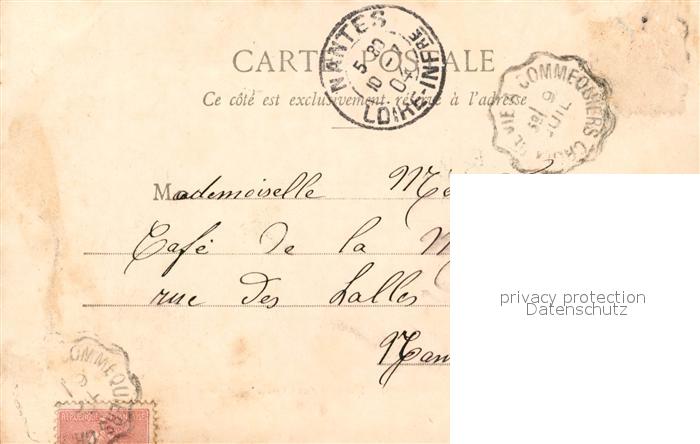 CARTE POSTALE
Ce côté est exclusivement réservé à l'adresse
NANTES
5 - 20
10 - 7
04
LOIRE-INFRE
COMMEQUIERS
9
JUIL
Mademoiselle
Café de la
rue des halles
privacy protection
Datenschutz